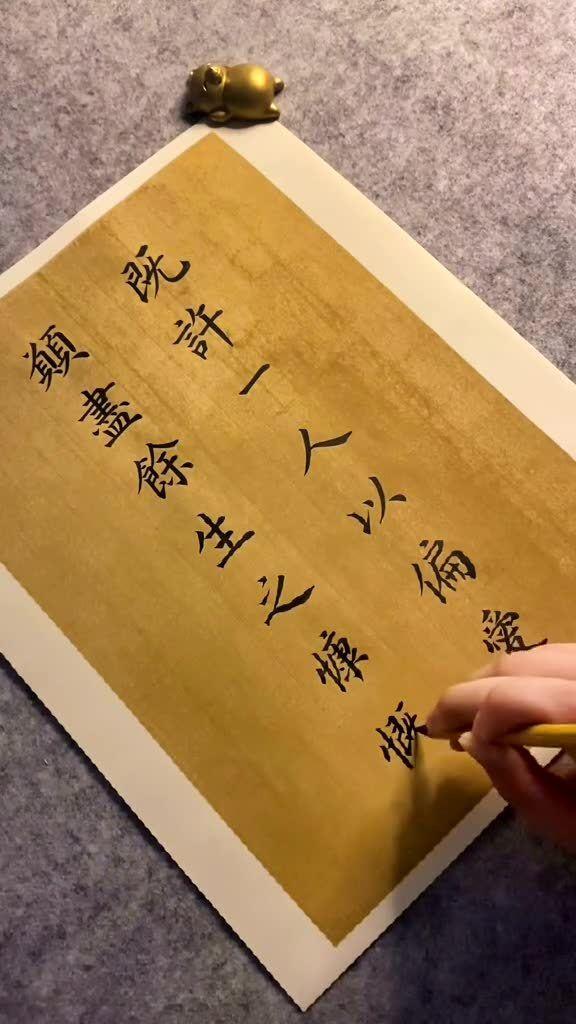 既許一人以偏愛
願盡餘生之慷慨